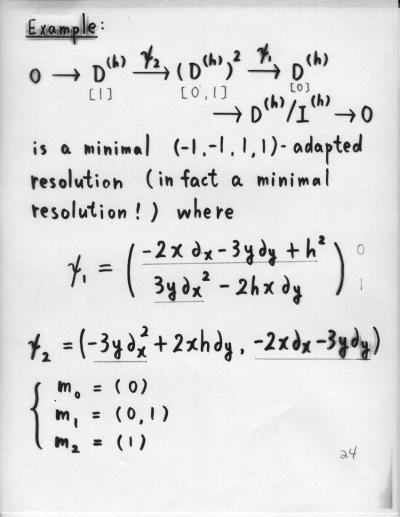 Example:
0 → D^(h) —ψ₂→ (D^(h))² —ψ₁→ D^(h)
[1] [0,1] [0]
→ D^(h)/I^(h) → 0
is a minimal (-1,-1,1,1)-adapted
resolution (in fact a minimal
resolution!) where
ψ₁ = ( -2x∂x - 3y∂y + h² ) 0
( 3y∂x² - 2hx∂y ) 1
ψ₂ = (-3y∂x² + 2xh∂y, -2x∂x - 3y∂y)
{ m₀ = (0)
m₁ = (0,1)
m₂ = (1)
24